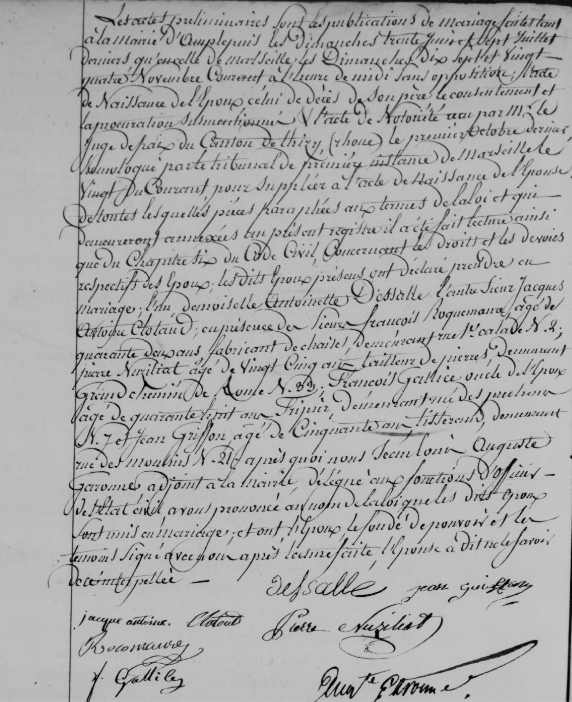 Les actes preliminaires sont les publications de mariage faites tant
à la mairie d'Amplepuis les dimanches trente Juin et Sept Juillet
derniers qu'en celle de Marseille les Dimanches dix sept et vingt
quatre Novembre Courant à l'heure de midi sans opposition; l'acte
de Naissance de l'Epoux celui de décès de son père le consentement et
la procuration susmentionné l'acte de Notoriété reçu par Mr. le
Juge de paix du Canton de thizy, (rhone) le premier octobre dernier
homologué par le tribunal de première instance de Marseille le
vingt du Courant pour suppléer à l'acte de Naissance de l'Epouse
de toutes lesquelles pièces paraphées aux termes de la loi et qui
demeureront annexées au présent registre il a été fait lecture ainsi
que du Chapitre six du Code Civil, Concernant les droits et les devoirs
respectifs des Epoux; les dits Epoux présens ont déclaré prendre en
mariage; l'un demoiselle Antoinette Dessalle l'autre Sieur Jacques
Antoine Clotaud; en présence de Sieurs françois Roquemaure, agé de
quarante deux ans, fabricant de chaises, demeurant rue N. 2;
pierre Nuziliat agé de vingt Cinq ans, tailleur de pierres, demeurant
Grand chemin de Rome N. 83; François Gallice oncle de l'Epoux
agé de quarante sept ans fripier, demeurant rue des
N. 7 et Jean agé de Cinquante ans tisserand, demeurant
rue des moulins N. après quoi nous Jean Louis Auguste
Garonne adjoint à la mairie, délégué aux fonctions d'officier
de l'Etat civil avons prononcé au nom de la loi que les dits Epoux
sont unis en mariage; et ont, l'Epoux le fondé de pouvoir et les
témoins signé avec nous après lecture faite, l'Epouse a dit ne le savoir
de ce interpellée —
deSSalle jean
jacque antoine Clotaud Pierre Nuziliat
Rocomaure
f. Gallice
Augte Garonne